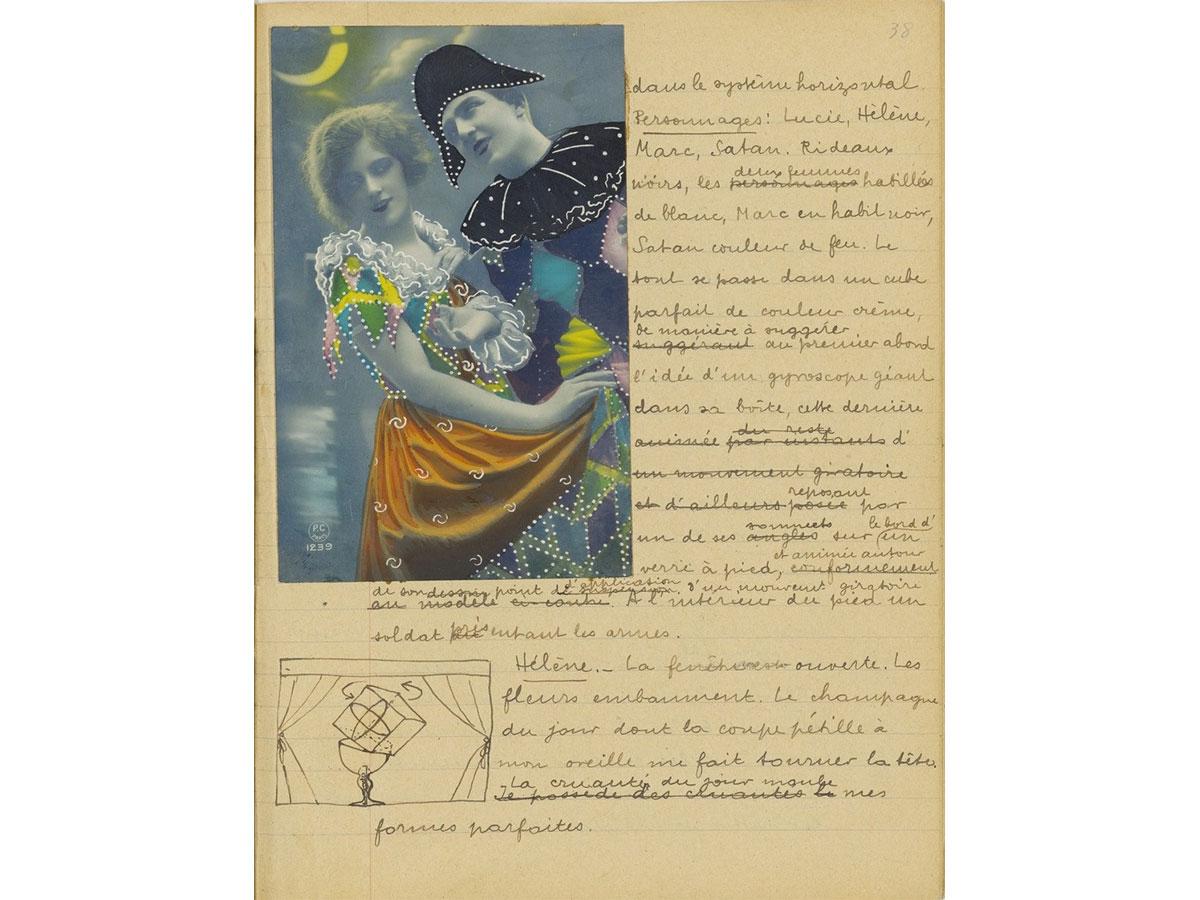 38
dans le système horizontal.
Personnages: Lucie, Hélène,
Marc, Satan. Rideaux
deux femmes
noirs, les personnages habillées
de blanc, Marc en habit noir,
Satan couleur de feu. Le
tout se passe dans un cube
parfait de couleur crème,
de manière à suggérer
suggérant au premier abord
l'idée d'un gyroscope géant
dans sa boîte, cette dernière
du reste
animée par instants d'
un mouvement giratoire
reposant
et d'ailleurs posée par
sommets le bord d'
un de ses angles sur un
et animée autour
verre à pied, conformément
de son dessin point de suspension d'application d'un mouvent giratoire
au modèle ci-contre. A l'intérieur du pied un
soldat présentant les armes.
Hélène.- La fenêtre est ouverte. Les
fleurs embaument. Le champagne
du jour dont la coupe pétille à
mon oreille me fait tourner la tête.
La cruauté du jour moule
Je possède des cruautés le mes
formes parfaites.
P.C
PARIS
1239